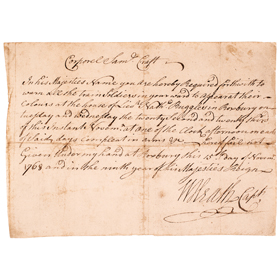 Corporel Saml Craft
In his Majesties Name you are hereby Required forthwith to
warn all the train Soldiers in your ward to appear at their
Colours at the house of Ruggles in Roxbury on
tuesday and Wednesday the twenty second and twenty third
of this Instant at one of the Clock afternoon on each
of said days Compleat in arms &c
Given under my hand at Roxbury this 15th Day of
1768 and in the ninth year of his Majesties Reign
Capt